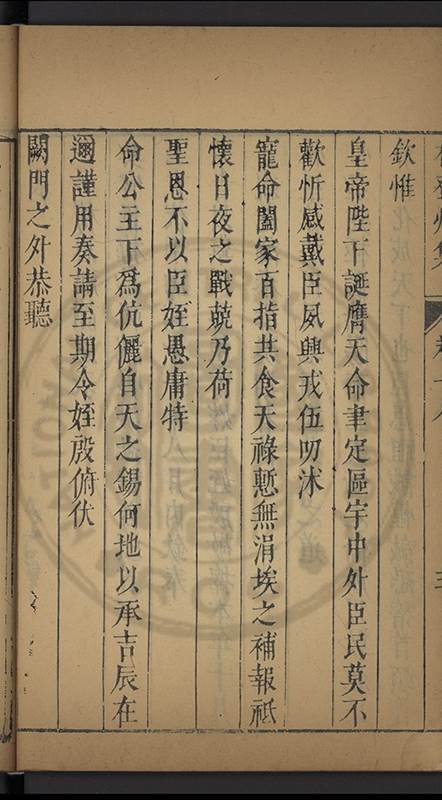 欽惟
皇帝陛下誕膺天命聿定區宇中外臣民莫不
歡忻感戴臣夙興戎伍叨沐
寵命闔家百指共食天祿慙無涓埃之補報祗
懷日夜之戰兢乃荷
聖恩不以臣姪愚庸特
命公主下為伉儷自天之錫何地以承吉辰在
邇謹用奏請至期令姪殷俯伏
闕門之外恭聽